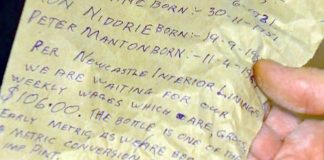 BORN:- 30-11-1951
NIDDRIE BORN:- 19-9-19
PETER MANTON BORN:- 11-4-19
PER NEWCASTLE INTERIOR LININGS
WE ARE WAITING FOR OUR
WEEKLY WAGES WHICH ARE GROSS,
$106.00. THE BOTTLE IS ONE OF
EARLY METRIC, AS WE ARE
METRIC CONVERSION
IMP PINT.